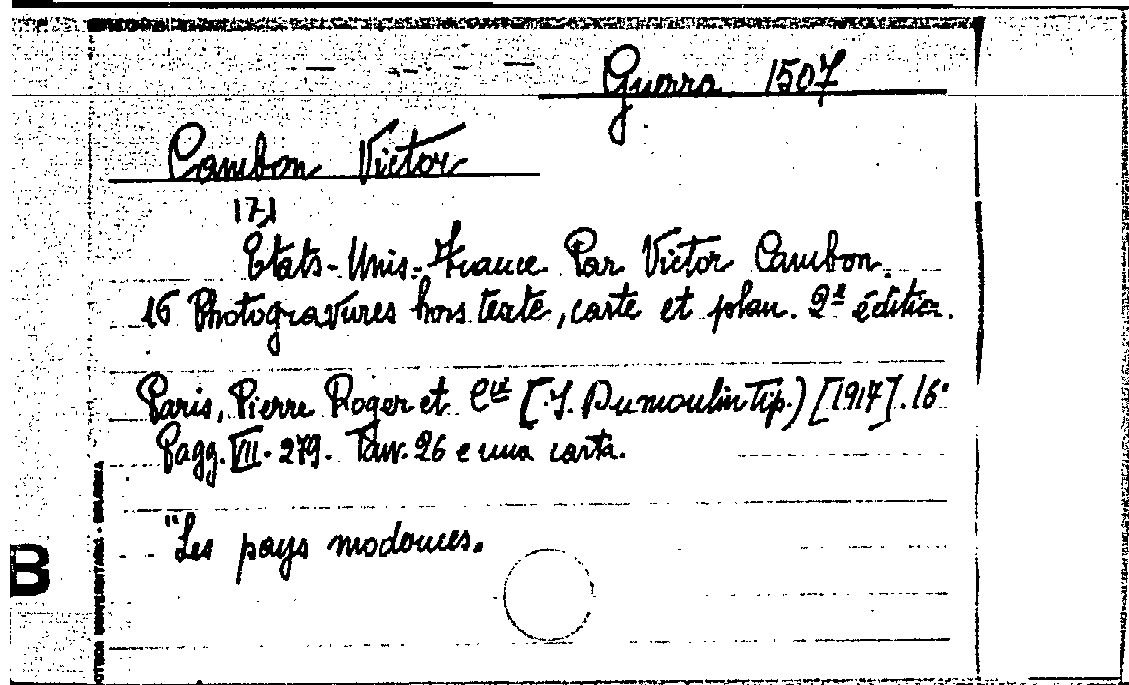 Guerra 1507
Cambon Victor
171
États-Unis-France. Par Victor Cambon.
16 Photogravures hors texte, carte et plan. 2e édition.
Paris, Pierre Roger et Cie [J. Dumoulin Tip.) [1917]. 16°
Pagg. VII-279. Tav. 26 e una carta.
"Les pays modernes.
B
UNIVERSITARIA - BOLOGNA